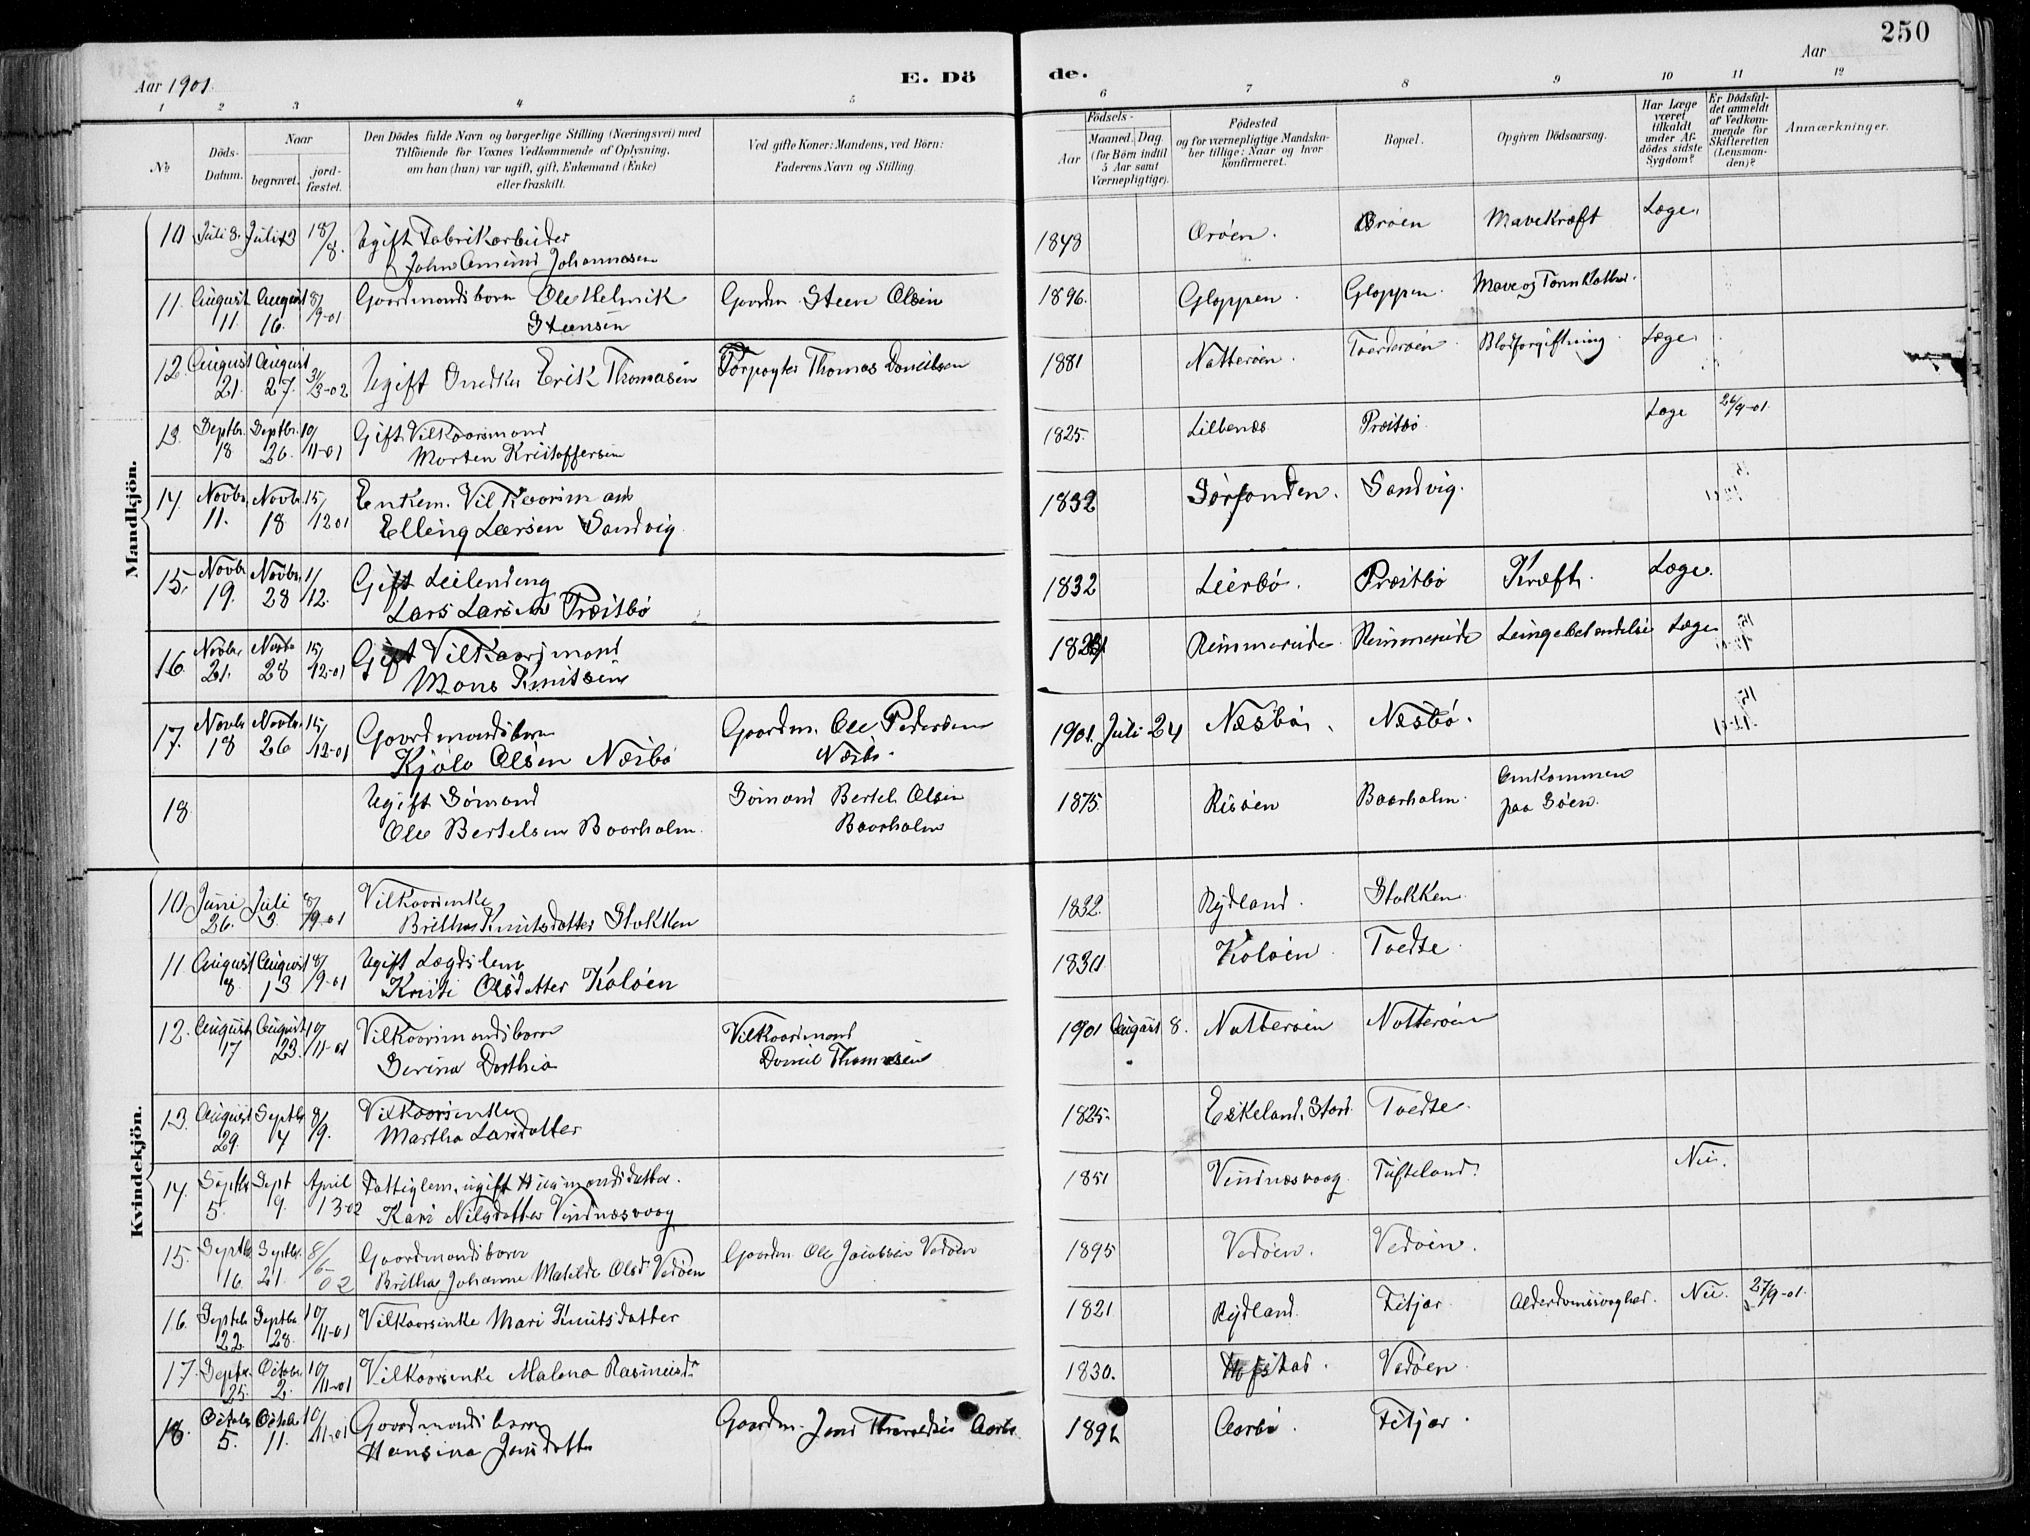 250
Aar 1901.
E. Dö
de.
Aar
1 2 3 4 5 6 7 8 9 10 11 12
No
Döds-Datum.
Naar
begravet.
jord-fæstet.
Den Dödes fulde Navn og borgerlige Stilling (Næringsvei) med
Tilföiende for Voxnes Vedkommende af Oplysning,
om han (hun) var ugift, gift, Enkemand (Enke)
eller fraskilt.
Ved gifte Koner: Mandens, ved Börn:
Faderens Navn og Stilling.
Födsels-
Aar
Maaned. Dag.
(for Börn indtil
5 Aar samt
Værnepligtige).
Födested
og for værnepligtige Mandska-
ber tillige: Naar og hvor
konfirmeret.
Bopæl.
Opgiven Dödsaarsag.
Har Læge
været
tilkaldt
under Af-
dödes sidste
Sygdom?
Er Dödsfal-
det anmeldt
af Vedkom-
mende for
Skifteretten
(Lensman-
den)?
Anmærkninger.
Mandkjön.
10 Juli 8. Juli 13 18/8. Ugift Fabrikarbeider
John Johannesen 1848 Oröen. Oröen Mavekræft Læge.
11. August 11. August 16. 8/9-01 Gaardmandsbarn Ole Helmik
Steensen Gaardm. Steen Olsen 1896. Gloppen. Gloppen. Mave og
12. August 21. August 27. 31/3-02 Ugift Snedker Erik Thomasen Forpagter Thomas Danielsen 1881 Natteröen. Blodforgiftning Læge.
13. Septbr. 18 Septbr. 26. 10/11-01 Gift Vilkaarsmand
Morten Kristoffersen 1825. Præstbö Læge 26/9-01.
14. Novbr. 11. Novbr. 18 15/12 01 Enkem. Vilkaarsmand
Elling Larsen Sandvig 1832 Sandvig.
15. Novbr. 19. Novbr. 28 1/12. Gift Leilending
Lars Larsen Præstbö 1832 Leirbö. Præstbö Kræft. Læge.
16. Novbr. 21. Novbr. 28 15/12-01 Gift Vilkaarsmand
Mons Knutsen Rimmereide Rimmereide Læge
17. Novbr. 18 Novbr. 26 15/12-01 Gaardmandsbarn
Olsen Næsbö Gaardm. Ole Pedersen
Næsbö. 1901. Juli 24 Næsbö. Næsbö.
18 Ugift Sömand
Ole Bertelsen Baarholm. Sömand Bertel Olsen
Baarholm 1875. Risöen Baarholm. Omkommen
paa Söen.
Kvindekjön.
10 Juni 26. Juli 3. 8/9-01 Vilkaarsenke
Britha Knutsdatter Stokken 1832. Rydland. Stokken.
11 August 8. August 13 8/9-01 Ugift Lægdslem
Kristi Olsdatter Kolöen Kolöen. Toedte.
12. August 17 August 23. 10/11-01 Vilkaarsmandsbarn
Serina Dorthia Vilkaarsmand
Daniel Thomasen 1901 August 8. Natteröen Natteröen
13. August 29. Septbr 4 8/9. Vilkaarsenke
Martha Larsdatter 1825. Eskeland, Stord. Toedte.
14. Septbr 5. Sept 9. April 13-02 Fattiglem, ugift Husmandsdatter.
Kari Nilsdatter Vindnæsvaag 1851 Vindnæsvaag. Tufteland. Nei.
15. Septbr. 16. Septbr. 21. 8/6-02 Gaardmandsbarn
Britha Johanne Matilde Olsdr. Vedöen Gaardm. Ole Jacobsen Vedöen 1895 Vedöen. Vedöen.
16. Septbr 22. Septbr 28. 10/11-01 Vilkaarsenke Mari Knutsdatter 1821 Rydland. Fitjar. Alderdomssvaghed. Nei. 27/9-01.
17. Septbr. 25. Octobr. 2. 10/11-01 Vilkaarsenke Malena Rasmusdr. 1830. Vedöen.
18. Octobr 5. Octobr 11. 10/11-01 Gaardmandsbarn
Hansina Jensdatter Gaardm. Jens Aarbö Aarbö. Fitjar.